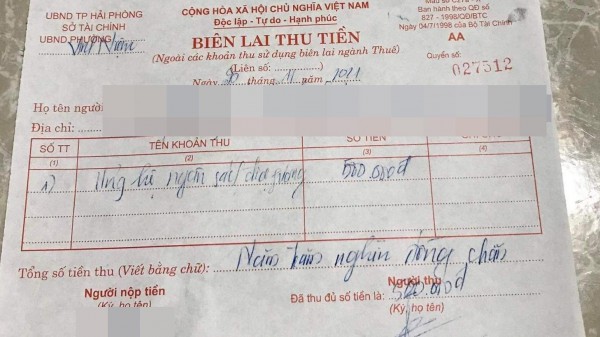 UBND TP HẢI PHÒNG
SỞ TÀI CHÍNH
UBND PHƯỜNG Vĩnh Niệm
CỘNG HÒA XÃ HỘI CHỦ NGHĨA VIỆT NAM
Độc lập - Tự do - Hạnh phúc
BIÊN LAI THU TIỀN
(Ngoài các khoản thu sử dụng biên lai ngành Thuế)
(Liên số:)
Ngày 30 tháng 11 năm 2021
Ban hành theo QĐ số
827 - 1998/QĐ/BTC
Ngày 04/7/1998 của Bộ Tài Chính
AA
Quyển số:
027512
Họ tên người
Địa chỉ:
SỐ TT TÊN KHOẢN THU SỐ TIỀN
(1) (2) (3) (4)
1) Ủng hộ ngân sách phường 500.000đ
Tổng số tiền thu (Viết bằng chữ): Năm trăm nghìn đồng chẵn
Người nộp tiền
(Ký, họ tên)
Người thu
Đã thu đủ số tiền là: 500.000đ
(Ký, họ tên)